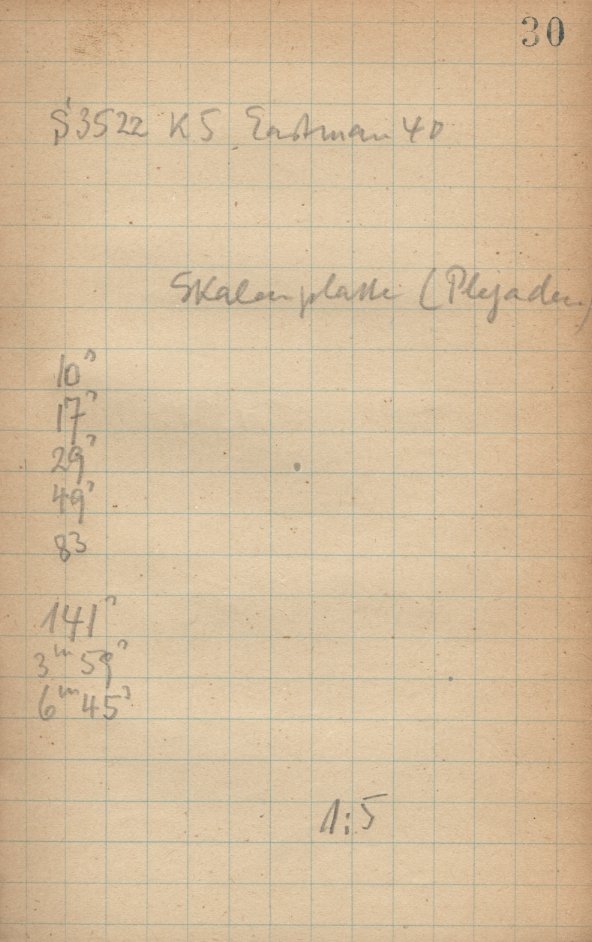 30
S 3522 K5 Eastman 40
Skalenplatte (Plejaden)
10ˢ
17ˢ
29ˢ
49ˢ
83
141ˢ
3ᵐ 59ˢ
6ᵐ 45ˢ
1:5